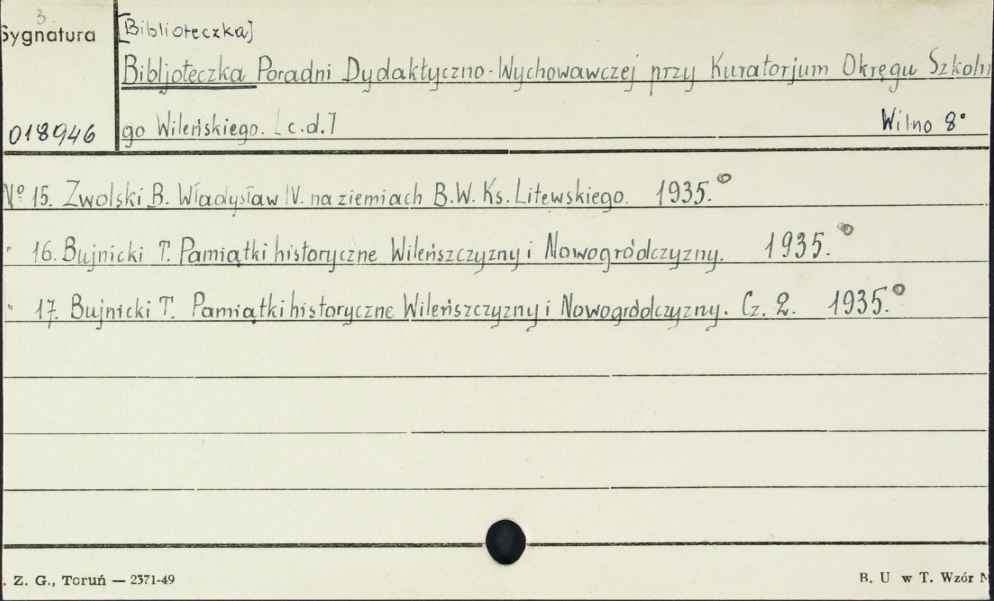 3
Sygnatura
[Biblioteczka]
Bibljoteczka Poradni Dydaktyczno-Wychowawczej przy Kuratorjum Okręgu Szkoln
018946
go Wileńskiego. [c.d.] Wilno 8°
Nº 15. Zwolski B. Władysław IV. na ziemiach B.W. Ks. Litewskiego. 1935.
" 16. Bujnicki T. Pamiątki historyczne Wileńszczyzny i Nowogródczyzny. 1935.
" 17. Bujnicki T. Pamiątki historyczne Wileńszczyzny i Nowogródczyzny. Cz. 2. 1935.
. Z. G., Toruń — 2371-49
B. U w T. Wzór N